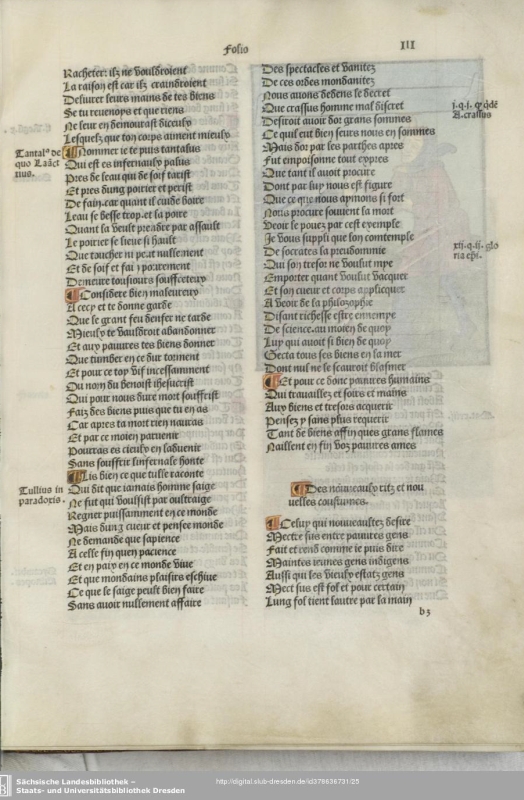 Folio III
Racheter: ilz ne vouldroient
La raison est car ilz craindroient
Delivrer leurs mains de tes biens
Se tu revenoys et que riens
Ne leur en demourast diceulx
Lesquelz que ton corps aiment mieulx
Nommer ie te puis tantalus
Qui est es infernaulx palus
Pres de leau qui de soif tarist
Et pres dung poirier et perist
De fain, car quant il cuide boire
Leau se besse trop, et la poire
Quant la veult prendre par assault
Le poirier se lieve si hault
Que toucher ni peut nullement
Et de soif et fai povrement
Demeure tousiours souffreteux
Considere bien maleureux
A cecy et te donne garde
Que le grant feu denfer ne tarde
Mieulx te vauldroit abandonner
Et aux pauvres tes biens donner
Que tumber en ce dur torment
Et pour ce top vif incessamment
Ou nom du benoist ihesucrist
Qui pour nous dure mort souffrist
Faiz des biens puis que tu en as
Car apres ta mort rien nauras
Et par ce moien parvenir
Pourras es cieulx en ladvenir
Sans souffrir linfernale honte
Lis bien ce que tulle raconte
Qui dit que iamais homme saige
Ne fut qui voulsist par oultraige
Regner puissamment en ce monde
Mais dung cueur et pensee monde
Ne demande que sapience
A celle fin quen pacience
Et en paix en ce monde vive
Et que mondains plaisirs eschive
Ce que le saige peult bien faire
Sans avoir nullement affaire
Tantalꝰ de
quo Lact
tius.
Tullius in
paradoxis.
Des spectacles et vanitez
De ces ordes mondanitez
Nous avons dedens le decret
Que crassus homme mal discret
Desiroit avoir dor grans sommes
Ce quil eut bien seurs nous en sommes
Mais dor par les parthes apres
Fut empoisonne tout expres
Que tant il avoit procure
Dont par luy nous est figure
Que ce que nous aymons si fort
Nous procure souvent la mort
Veoir le povez par cest exemple
Je vous suppli que lon contemple
De socrates la preudommie
Qui son tresor ne voulut mye
Emporter quant voulut vacquer
Et son cueur et corps applicquer
A veoir de la philozophie
Disant richesse estre ennemye
De science, au moien de quoy
Luy qui avoit si bien de quoy
Gecta tous ses biens en la mer
Dont nul ne le scauroit blasmer
Et pour ce donc pauvres humains
Qui travaillez et soirs et mains
Aux biens et tresors acquerir
Pensez y sans plus requerir
Tant de biens affin ques grans flames
Naillent en fin voz pauvres ames
Des nouveaulx ritz et nou
velles coustumes.
Celuy qui nouveaultez desire
Mectre sus entre pauvres gens
Fait et rend comme ie puis dire
Maintes ieunes gens indigens
Aussi qui les vieulx estatz gens
Mect sus est fol et pour certain
Lung fol tient lautre par la main
b3
i.q.i. qꝛ qdē
A.crassus
xii.q.ii. glo
ria epi.
Sächsische Landesbibliothek –
Staats- und Universitätsbibliothek Dresden
http://digital.slub-dresden.de/id378636731/25